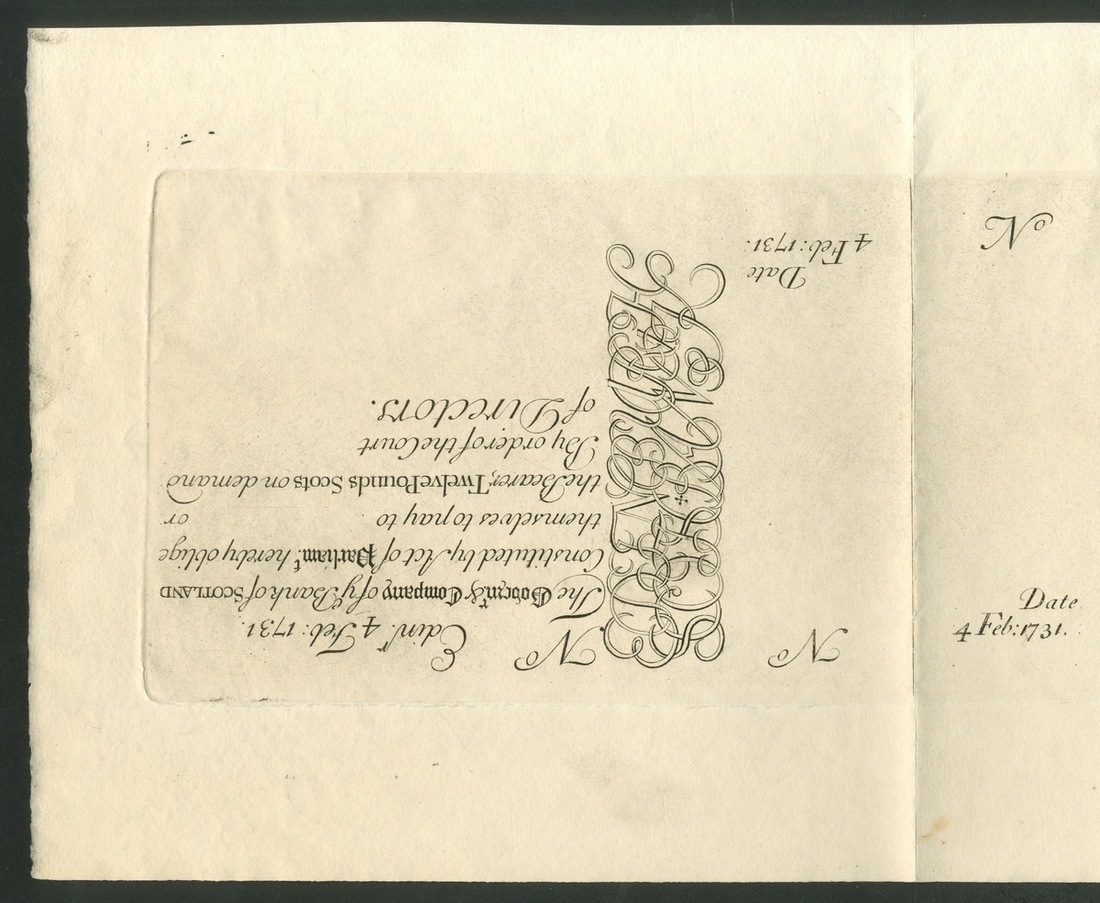 Nº
Edinʳ. 4 Feb: 1731.
The Governʳ & Company of yᵉ Bank of SCOTLAND
Constituted by Act of Parliamᵗ. hereby oblige
themselves to pay to or
the Bearer, Twelve Pounds Scots on demand
By order of the Court
of Directors.
Nº
Date
4 Feb: 1731.
Nº
Date
4 Feb: 1731.